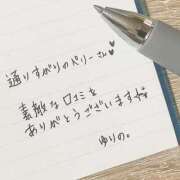 通りすがりのペリーさん
素敵な口コミを
ありがとうございます
ゆりの。